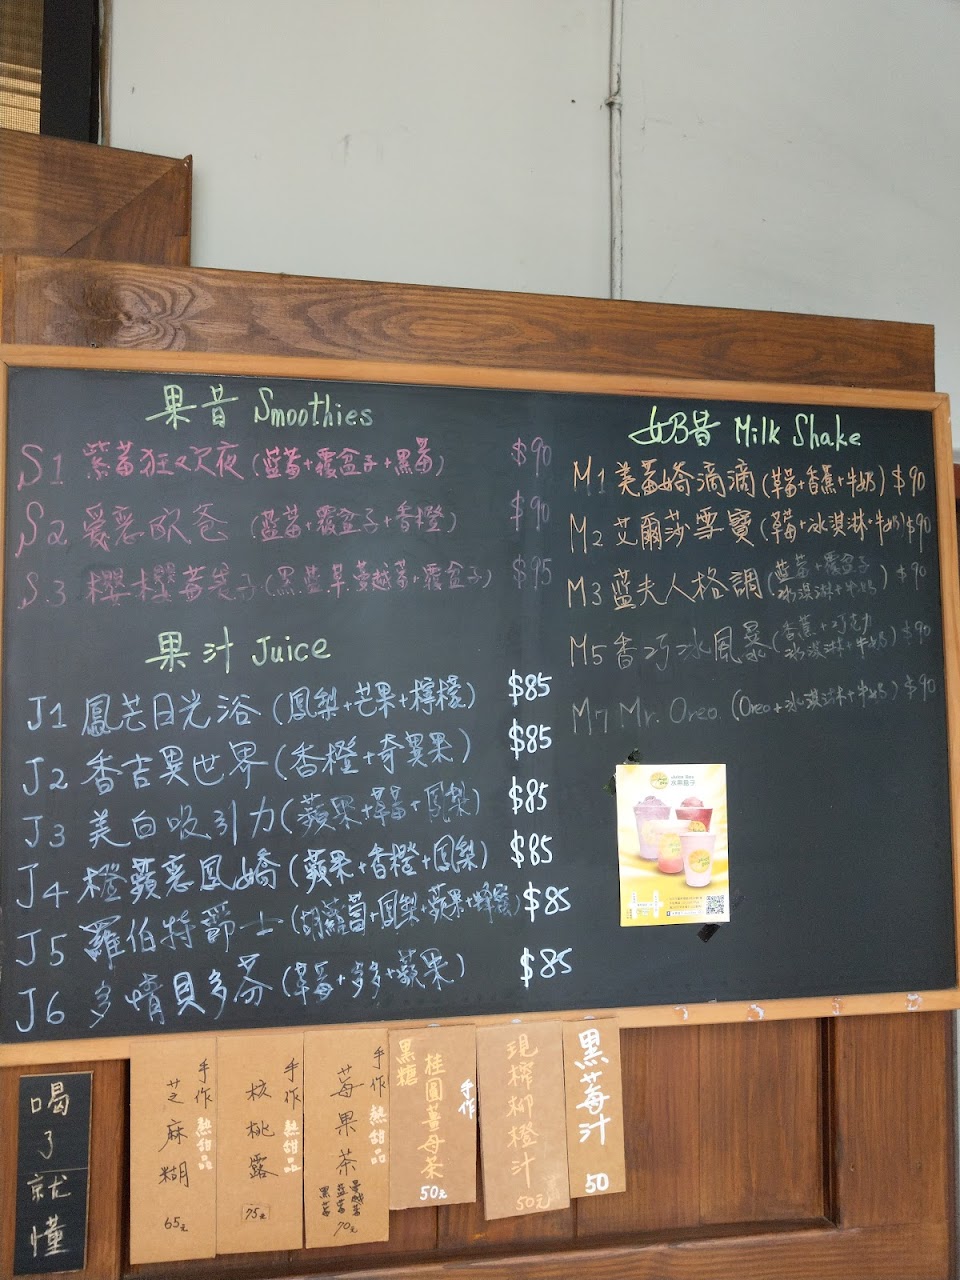 果昔 Smoothies
S1 紫莓狂欢夜(藍莓+覆盆子+黑莓) $90
S2 愛戀歐爸 (藍莓+覆盆子+香橙) $90
S3 櫻櫻莓裝子(黑.藍.草.蔓越莓+覆盆子) $95
果汁 Juice
J1 鳳芒日光浴(鳳梨+芒果+檸檬) $85
J2 香吉異世界(香橙+奇異果) $85
J3 美白吸引力(蘋果+草莓+鳳梨) $85
J4 橙蘋戀鳳嬌(蘋果+香橙+鳳梨) $85
J5 羅伯特爵士(胡蘿蔔+鳳梨+蘋果+蜂蜜) $85
J6 多情貝多芬(草莓+多多+蘋果) $85
奶昔 Milk Shake
M1 美莓嬌滴滴(草莓+香蕉+牛奶) $90
M2 艾爾莎雪寶(草莓+冰淇淋+牛奶) $90
M3 藍夫人格調(藍莓+覆盆子
冰淇淋+牛奶) $90
M5 香巧冰風暴(香蕉+巧克力
冰淇淋+牛奶) $90
M7 Mr. Oreo (Oreo+冰淇淋+牛奶) $90
水果盒子
喝了就懂
手作熱甜品
芝麻糊
65元
手作熱甜品
核桃露
75元
手作熱甜品
莓果茶
蔓越莓
藍莓
黑莓
70元
手作
黑糖
桂圓薑母茶
50元
現榨柳橙汁
50元
黑莓汁
50